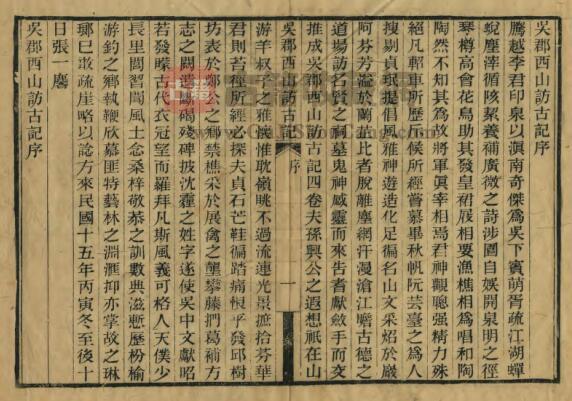 吳郡西山訪古記序
騰越李君印泉以滇南奇傑為吳下賓萌胥疏江湖蟬
蛻塵滓循陔絜養補廣微之詩涉園自娛開泉明之徑
琴樽高會花鳥助其發皇裙屐相要漁樵相為唱和陶
陶然不知其為故將軍真宰相焉君神觀聰强精力殊
絕凡軺車所歷斥候所經嘗慕畢秋帆阮芸臺之為人
搜剔貞珉提倡風雅神遊造化足徧名山文采炤於巖
阿芬芳流於蘭芷比者脫離塵網汗漫滄江瞻古德之
道場訪名賢之祠墓鬼神感靈而來告耆獻斂手而交
推成吳郡西山訪古記四卷夫孫興公之遐想祇在山
吳郡西山訪古記
序
一
游羊叔子之雅懷惟耽嶺眺不過流連光景摭拾芬華
君則苔徑所經必探夫貞石芒鞋徧踏痛恨乎發邱樹
坊表於鄭公之鄉禁樵采於展禽之壟攀藤捫葛補方
志之闕遺斷碣殘碑披沈薶之姓字遂使吳中文獻昭
若發矇古代衣冠望而羅拜凡斯風義可格人天僕少
長里閈習聞風土念桑梓敬恭之訓數典滋慙歷枌榆
游釣之鄉執鞭欣慕匪特藝林之淵滙抑亦掌故之琳
瑯已敢疏崖略以諗方來民國十五年丙寅冬至後十
日張一麐